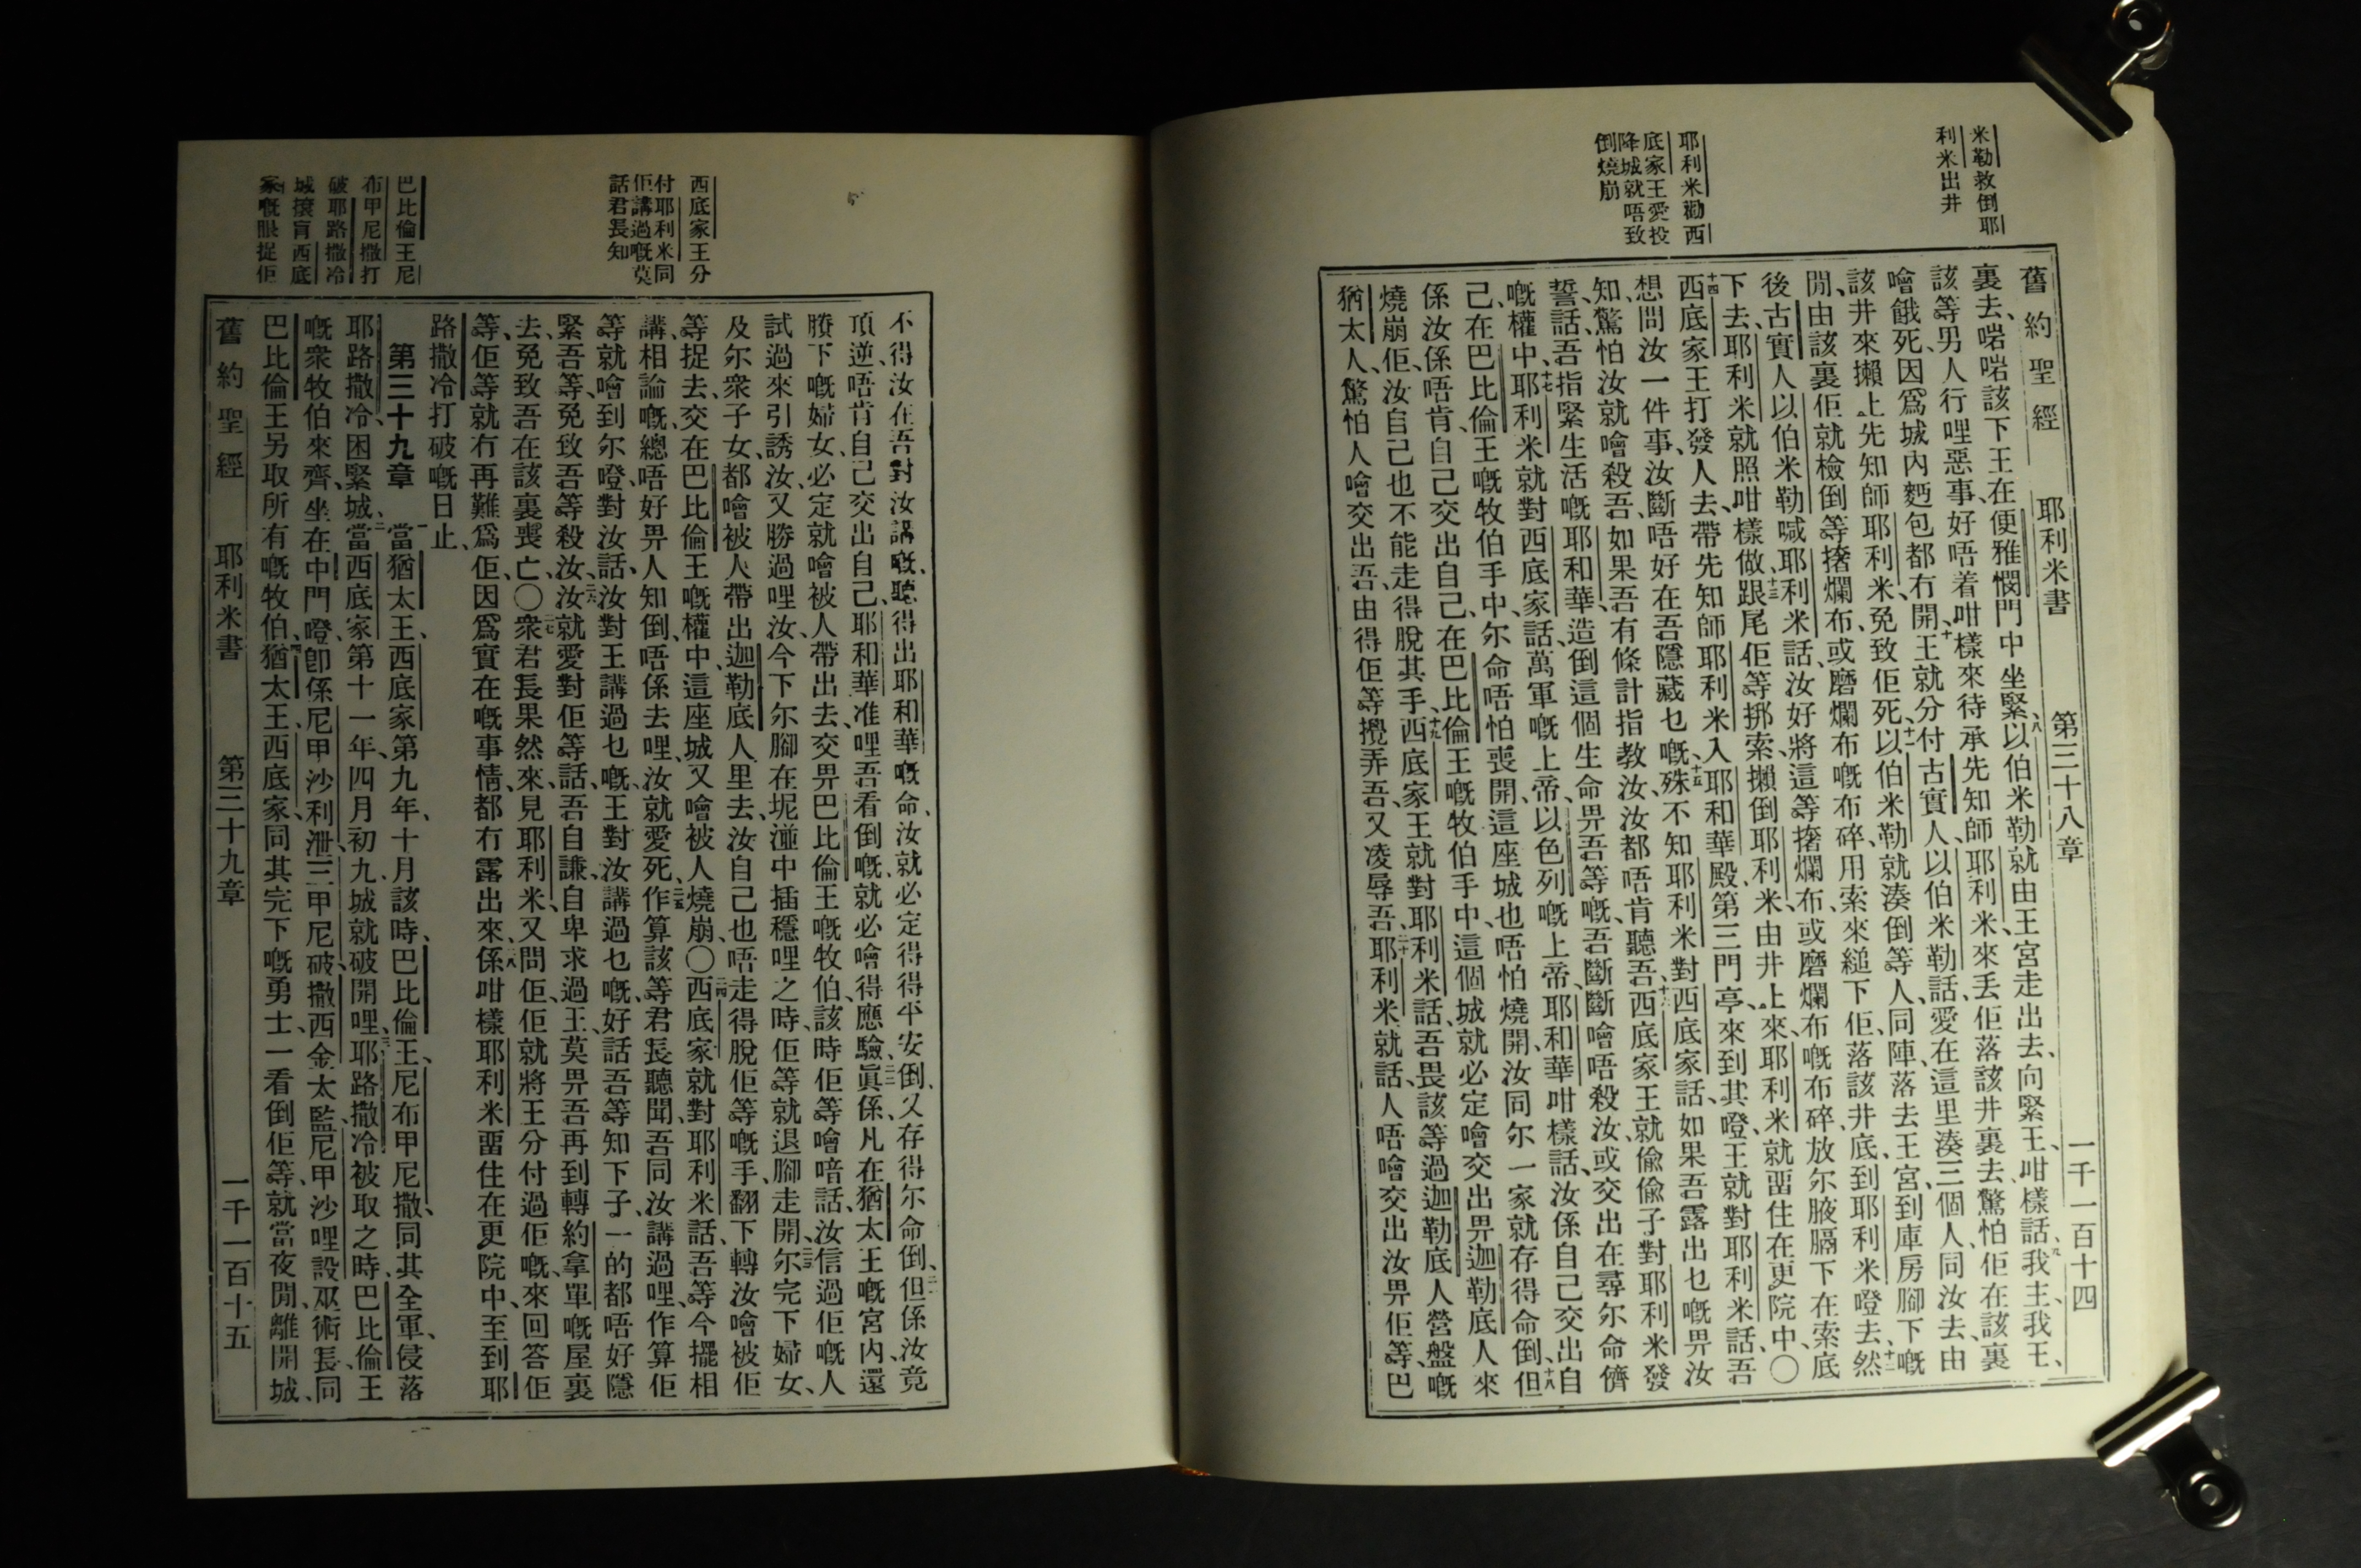 米勒救倒耶
利米出井
耶利米勸西
底家王愛投
降城就唔致
倒燒崩
舊約聖經 耶利米書 第三十八章 一千一百十四
裏去、啱啱該下王在便雅憫門中坐緊、八以伯米勒就由王宮走出去、向緊王、咁樣話、九我主、我王、
該等男人行哩惡事、好唔着咁樣來待承先知師耶利米、來丟佢落該井裏去、驚怕佢在該裏
噲餓死、因爲城內麪包都冇開、十王就分付古實人以伯米勒話、愛在這里湊三個人、同汝去、由
該井來攋上先知師耶利米、免致佢死、十一以伯米勒就湊倒等人、同陣、落去王宮、到庫房腳下嘅
閒、由該裏佢就檢倒等撦爛布、或磨爛布嘅布碎、用索來縋下佢、落該井底、到耶利米噔去、十二然
後古實人以伯米勒喊耶利米話、汝好將這等撦爛布、或磨爛布嘅布碎、放尔腋膈下在索底
下去、耶利米就照咁樣做、十三跟尾佢等挷索、攋倒耶利米、由井上來、耶利米就畱住在更院中、〇
十四西底家王打發人去、帶先知師耶利米入耶和華殿、第三門亭、來到其噔、王就對耶利米話、吾
想問汝一件事、汝斷唔好在吾隱藏乜嘅、十五殊不知耶利米對西底家話、如果吾露出乜嘅畀汝
知、驚怕汝就噲殺吾、如果吾有條計指教汝、汝都唔肯聽吾、十六西底家王就偷偷子對耶利米發
誓話、吾指緊生活嘅耶和華、造倒這個生命畀吾等嘅、吾斷斷噲唔殺汝、或交出在尋尔命儕
嘅權中、十七耶利米就對西底家話、萬軍嘅上帝、以色列嘅上帝、耶和華咁樣話、汝係自己交出自
己、在巴比倫王嘅牧伯手中、尔命唔怕喪開、這座城也唔怕燒開、汝同尔一家就存得命倒、十八但
係汝係唔肯自己交出自己、在巴比倫王嘅牧伯手中、這個城就必定噲交出畀迦勒底人來
燒崩佢、汝自己也不能走得脫其手、十九西底家王就對耶利米話、吾畏該等過迦勒底人營盤嘅
猶太人、驚怕人噲交出吾、由得佢等攪弄吾、又凌辱吾、二十耶利米就話、人唔噲交出汝畀佢等、巴
西底家王分
付耶利米同
佢講過嘅莫
話君長知
巴比倫王尼
布甲尼撒打
破耶路撒冷
城㨘盲西底
家嘅眼捉佢
不得汝在吾對汝講嘅、聽得出耶和華嘅命、汝就必定得得平安倒、又存得尔命倒、二一但係汝竟
頂逆、唔肯自己交出自己、耶和華准哩吾看倒嘅、就必噲得應驗、二二眞係、凡在猶太王嘅宮內、還
賸下嘅婦女、必定就噲被人帶出去、交畀巴比倫王嘅牧伯、該時佢等噲暗話、汝信過佢嘅人
試過來引誘汝、又勝過哩汝、今下尔腳在坭湴中插穩哩之時、佢等就退腳走開、二三尔完下婦女、
及尔衆子女、都噲被人帶出迦勒底人里去、汝自己也唔走得脫佢等嘅手、翻下轉汝噲被佢
等捉去、交在巴比倫王嘅權中、這座城又噲被人燒崩、〇二四西底家就對耶利米話、吾等今擺相
講相論嘅、總唔好畀人知倒、唔係去哩、汝就愛死、二五作算該等君長聽聞、吾同汝講過哩、作算佢
等就噲到尔噔、對汝話、汝對王講過乜嘅、王對汝講過乜嘅、好話吾等知下子、一的都唔好隱
緊吾等、免致吾等殺汝、二六汝就愛對佢等話、吾自謙自卑求過王、莫畀吾再到轉約拿單嘅屋裏
去、免致吾在該裏喪亡、〇二七衆君長果然來、見耶利米、又問佢、佢就將王分付過佢嘅、來回答佢
等、佢等就冇再難爲佢、因爲實在嘅事情、都冇露出來、二八係咁樣耶利米畱住在更院中、至到耶
路撒冷打破嘅日止、
第三十九章 一當猶太王、西底家第九年、十月該時、巴比倫王、尼布甲尼撒、同其全軍、侵落
耶路撒冷、困緊城、二當西底家第十一年、四月初九、城就破開哩、三耶路撒冷被取之時、巴比倫王
嘅衆牧伯來齊、坐在中門噔、卽係尼甲沙利泄、三甲尼破、撒西金太監、尼甲沙哩設巫術長、同
巴比倫王另取所有嘅牧伯、四猶太王、西底家、同其完下嘅勇士、一看倒佢等、就當夜閒、離開城、
舊約聖經 耶利米書 第三十九章 一千一百十五